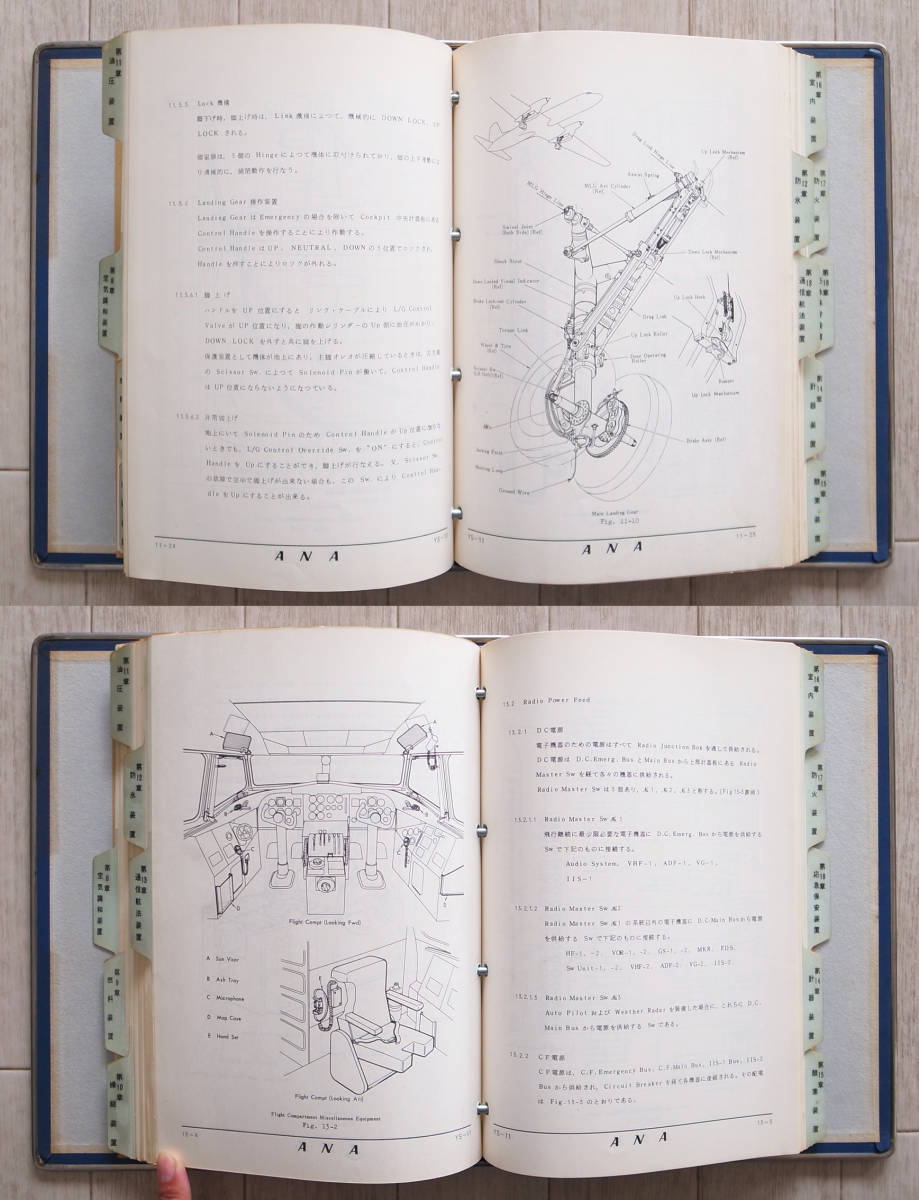 第11章 油圧装置
第8章 空気調和装置
11.5.5 Lock 機構
脚下げ時、脚上げ時は、Link 機構によつて、機械的に DOWN LOCK、UP
LOCK される。
11.5.6 Landing Gear 操作装置
Landing Gear は Emergency の場合を除いて Cockpit 中央計器板にある
Control Handle を操作することにより作動する。
Control Handle は UP、NEUTRAL、DOWN の3位置でロックされ、
Handle を押すことによりロックが外れる。
11.5.6.1 脚上げ
ハンドルを UP 位置にすると リンク・ケーブルにより L/G Control
Valve が UP 位置になり、
DOWN LOCK を外すと共に脚を上げる。
保護装置として機体が地上にあり、主脚オレオが圧縮しているときは、
の Scissor Sw. によつて Solenoid Pin が働いて、Control Handle
は UP 位置にならないようになつている。
11.5.6.2 非常脚上げ
地上にいて Solenoid Pin のため Control Handle が Up 位置に
いときでも、L/G Control Override Sw. を "ON" にすると、Control
Handle を Up にすることができ、脚上げが行なえる。又、Scissor Sw.
の故障で空中で脚上げが出来ない場合も、この Sw. により Control Han-
dle を Up にすることが出来る。
11-24
YS-11
ANA
Drag Link Hinge Line
Up Lock Mechanism
(Ref)
Assist Spring
MLG Act Cylinder
(Ref)
MLG Hinge Line
Swivel Joint
(Both Side) (Ref)
Shock Strut
Down Lock Mechanism
(Ref)
Down Locked Visual Indicator
(Ref)
Brake Lock-out Cylinder
(Ref)
Up Lock Hook
Drag Link
Torque Link
Up Lock Roller
Wheel & Tire
(Ref)
Door Operating
Roller
Scissor Sw.
Bumper
Up Lock Mechanism
Axle
Brake Assy (Ref)
Jacking Point
Mooring Lung
Ground Wire
Main Landing Gear
Fig. 11-10
YS-11
11-25
ANA
第16章 室内装置
第12章 防氷装置
第17章 防火装置
第13章 通信航法装置
第14章 計器装置
第15章 酸素装置
第11章 油圧装置
第12章 防氷装置
第8章 空気調和装置
第13章 通信航法装置
第9章 燃料装置
第10章 操縦装置
A
A
B
C
C
D
D
E
Flight Compt (Looking Fwd)
A Sun Visor
B Ash Tray
C Microphone
D Map Case
E Hand Set
Flight Compt (Looking Aft)
Flight Compartment Miscellaneous Equipment
Fig. 13-2
13-4
YS-11
ANA
13.2 Radio Power Feed
13.2.1 DC電源
電子機器のための電源はすべて Radio Junction Box を通して供給される。
DC電源は D.C.Emerg. Bus と Main Bus から上部計器板にある Radio
Master Sw を経て各々の機器に供給される。
Radio Master Sw は3個あり、№1、№2、№3と称する。
13.2.1.1 Radio Master Sw №1
飛行継続に最少限必要な電子機器に D.C.Emerg. Bus から電源を供給する
Sw で下記のものに接続する。
Audio System、VHF-1、ADF-1、VG-1、
IIS-1
13.2.1.2 Radio Master Sw №2
Radio Master Sw №1 の系統以外の電子機器に D.C.Main Bus から電源
を供給する Sw で下記のものに接続する。
HF-1、-2、VOR-1、-2、GS-1、-2、MKR、FDS、
Sw Unit-1、-2、VHF-2、ADF-2、VG-2、IIS-2、
13.2.1.3 Radio Master Sw №3
Auto Pilot および Weather Radar を装備した場合に、これらに D.C.
Main Bus から電源を供給する Sw である。
13.2.2 CF電源
CF電源は、C.F.Emergency Bus、C.F.Main Bus、IIS-1 Bus、IIS-2
Bus から供給され、Circuit Breaker を経て各機器に接続される。その配電
は Fig-13-3 のとおりである。
YS-11
13-5
ANA
第16章 室内装置
第17章 防火装置
第18章 応急保安装置
第14章 計器装置
第15章 酸素装置